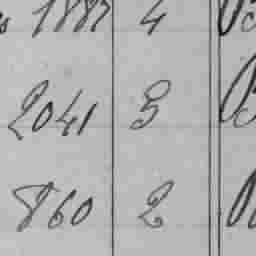 1887 4
2041 3
860 2